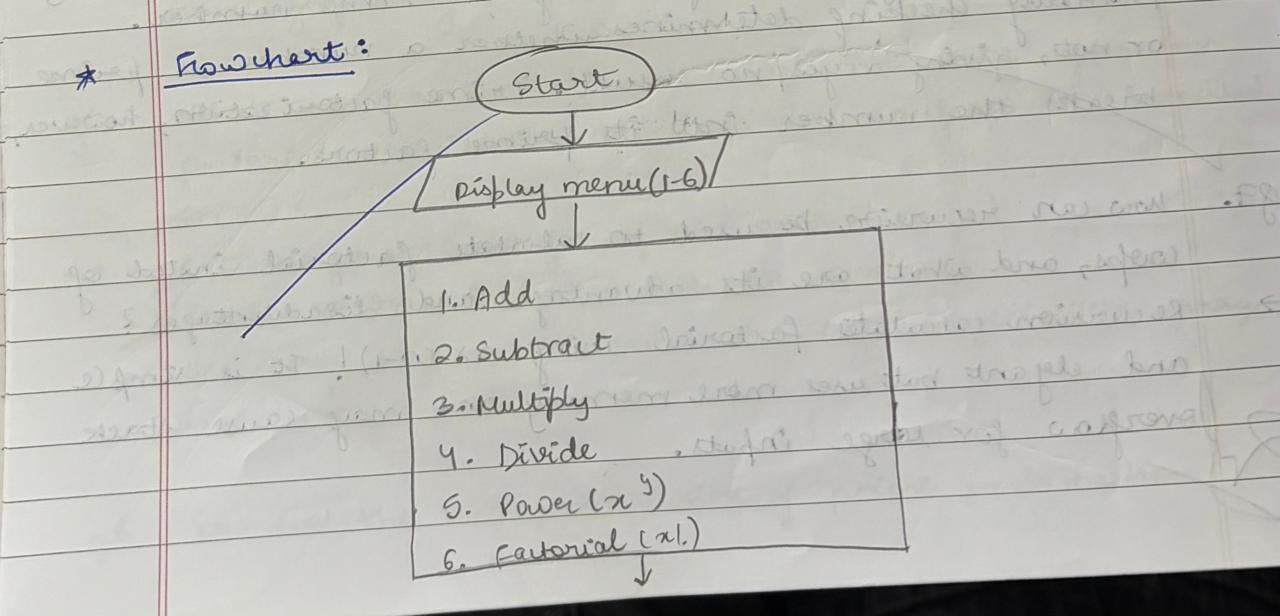 * Flowchart:
Start
Display menu(1-6)
1. Add
2. Subtract
3. Multiply
4. Divide
5. Power (x^y)
6. Factorial (x!)